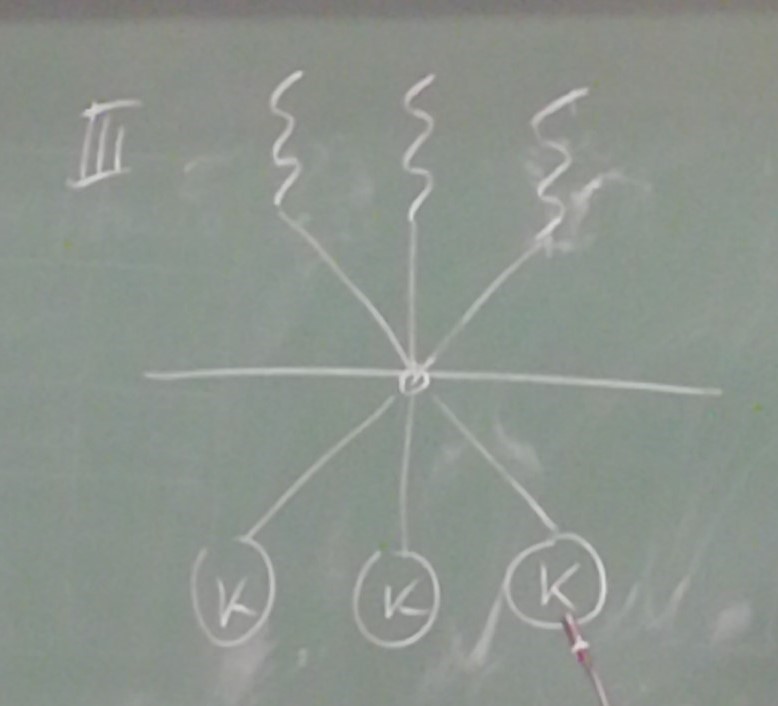 III
K K K